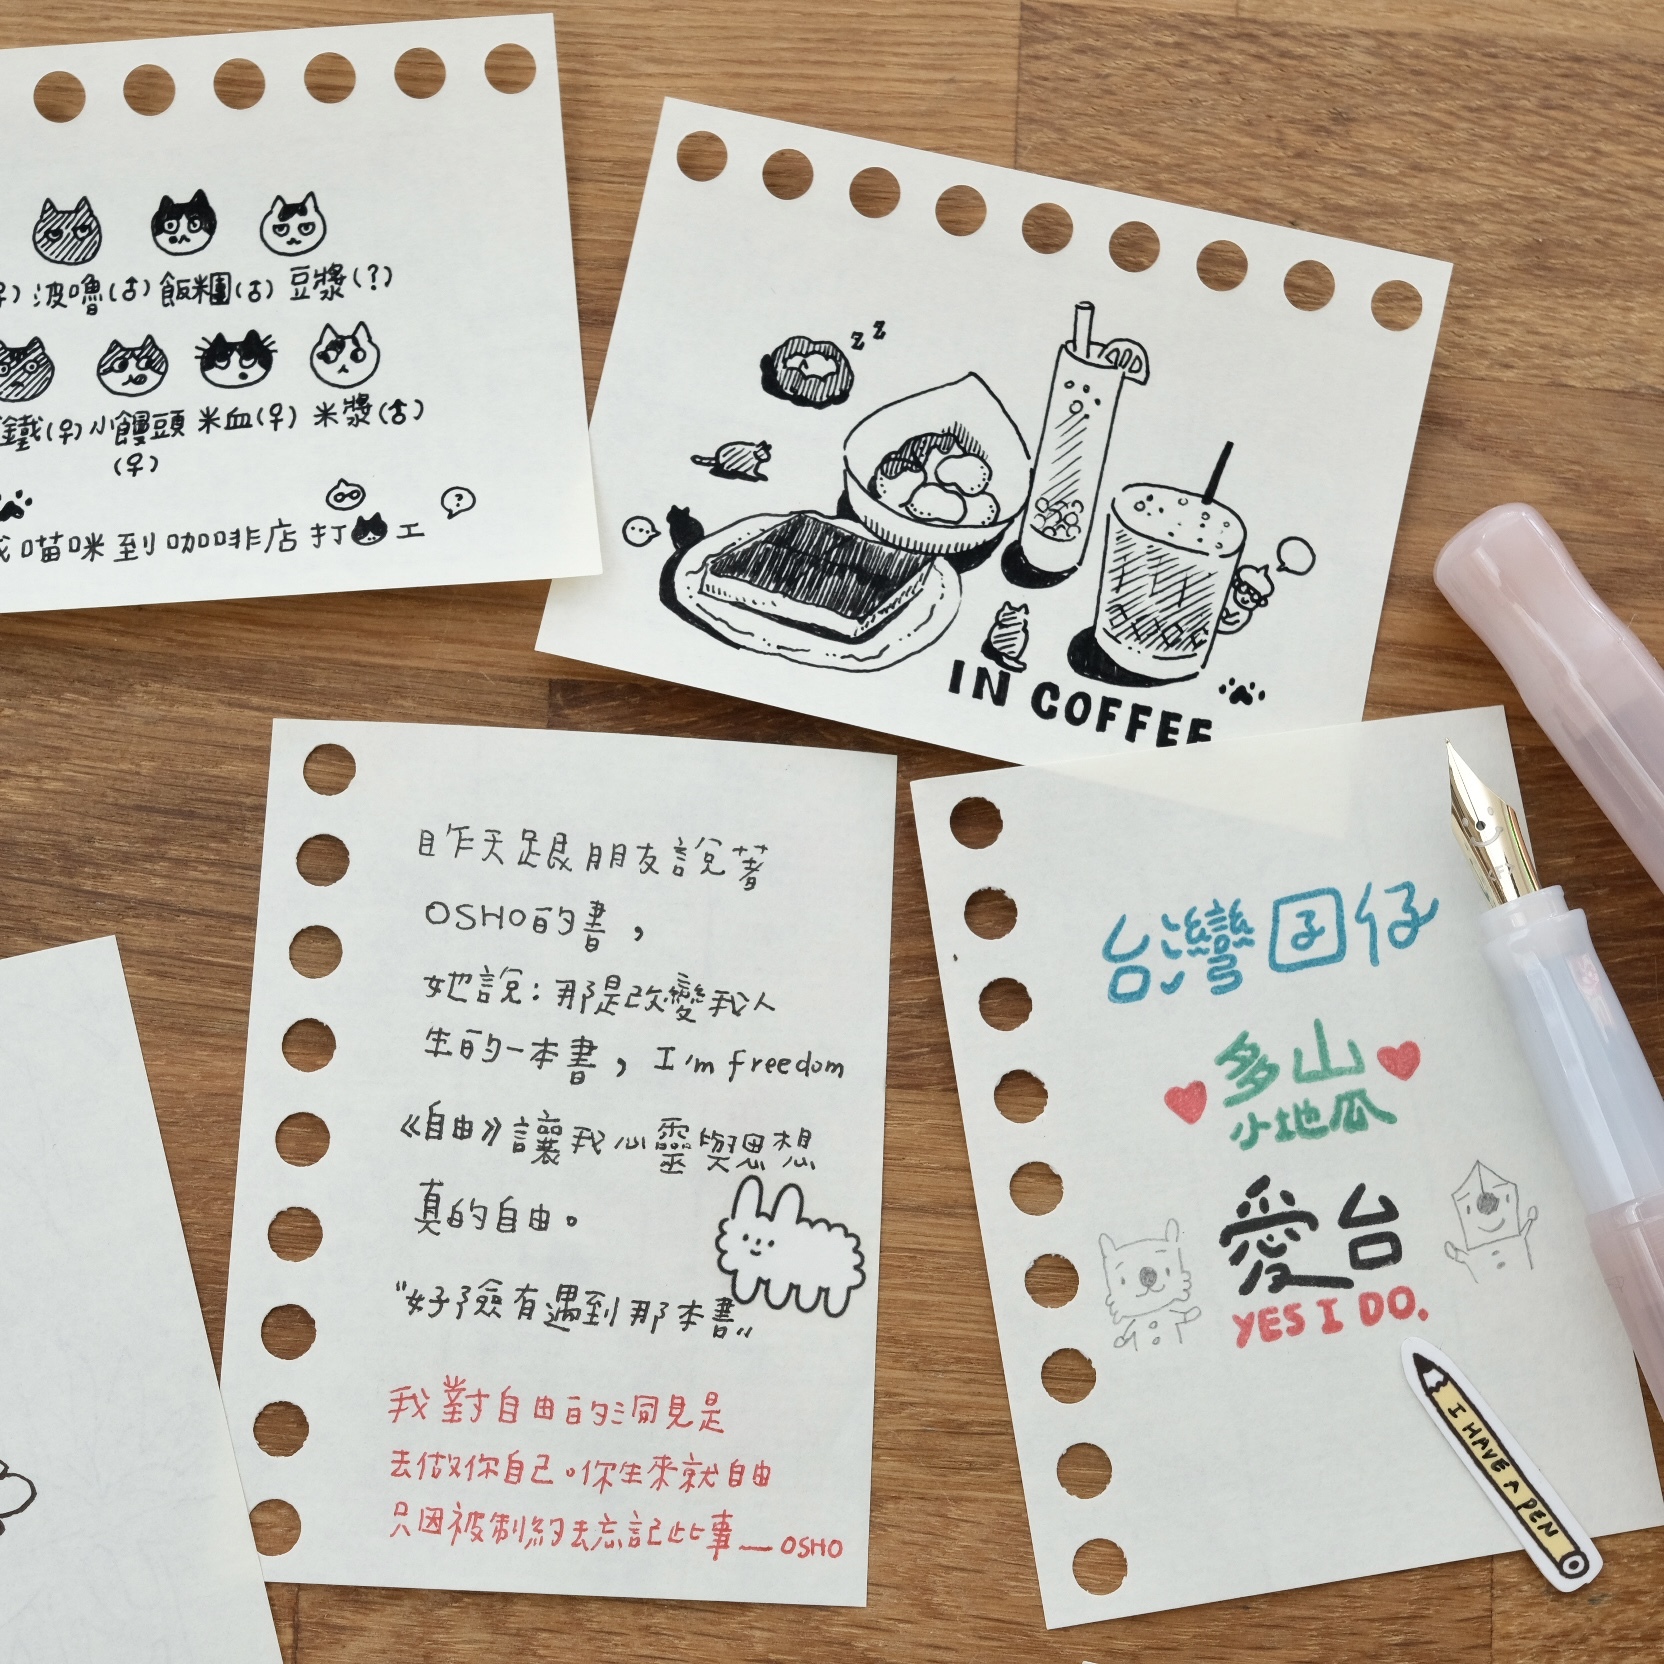 波嚕(古) 飯糰(古) 豆漿(?)
鐵(孕) 小饅頭 米血(孕) 米漿(古)
(孕)
喵咪到咖啡店打工
z z
IN COFFEE
昨天跟朋友說著
OSHO的書,
她說:那是改變我人
生的一本書, I'm freedom
《自由》讓我心靈與思想
真的自由。
"好險有遇到那本書"
我對自由的洞見是
去做你自己。你生來就自由
只因被制約去忘記此事—OSHO
台灣囝仔
多山
小地瓜
愛台
YES I DO.
I HAVE A PEN